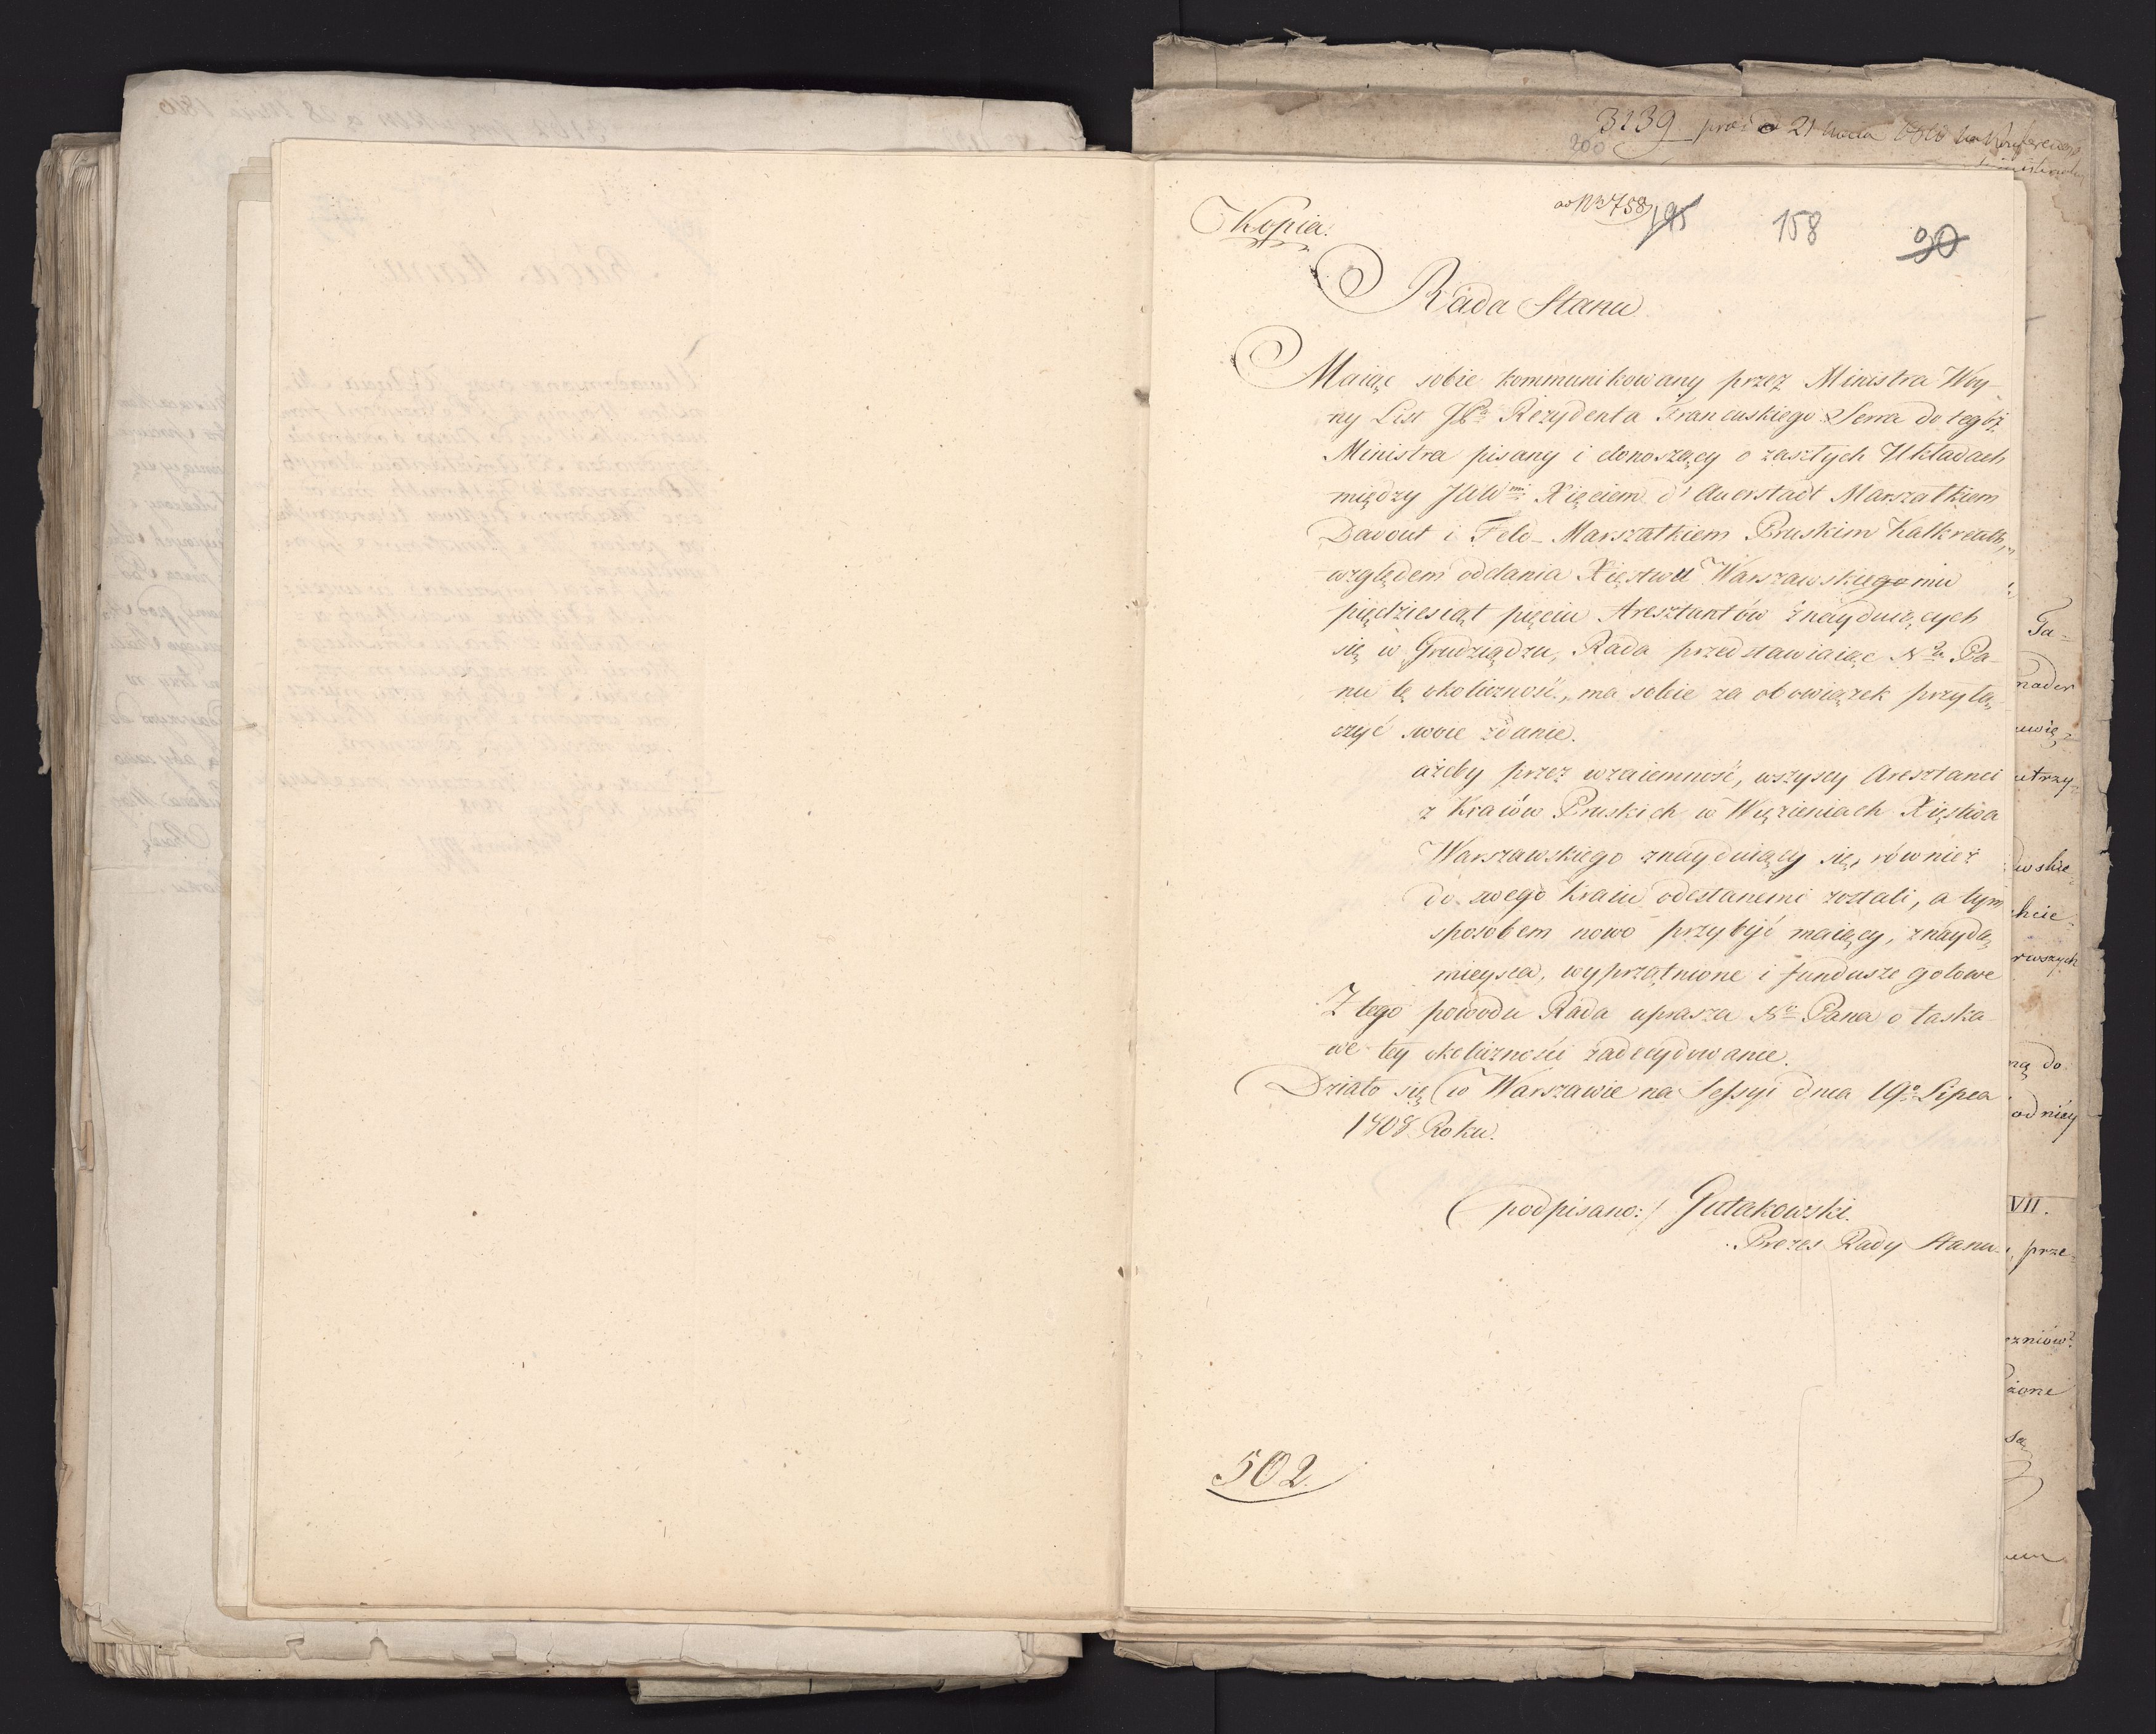 3239
200
Kopia:
ad N 3758
195
158
90
Rada Stanu
Maiąc sobie kommunikowany przez Ministra Woy-
ny List JPa Rezydenta Francuskiego Serra do tegoż
Ministra pisany i donoszący o zaszłych Układach
między JWmi Xięciem d'Auerstadt Marszałkiem
Davout i Feld-Marszałkiem Pruskim Kalkreuth,
względem oddania Xięstwu Warszawskiegomu
pięćdziesiąt pięciu Aresztantów znayduiących
się w Grudziądzu, Rada przedstawiaiąc Nu Pa-
nu tę okoliczność, ma sobie za obowiązek przyłą-
czyć swoie zdanie.
ażeby przez wzaiemność, wszyscy Aresztanci
z Kraiów Pruskich w Więzieniach Xięstwa
Warszawskiego znayduiący się, również
do swego Kraiu odesłanemi zostali, a tym
sposobem nowo przybyć maiący, znaydą
mieysca, wyprzątnione i fundusze gotowe
Z tego powodu Rada uprasza No Pana o łaska-
we tey okoliczności zadecydowanie.
Działo się w Warszawie na Sessyi dnia 19o Lipca
1808 Roku.
(podpisano:) Gutakowski.
Prezes Rady Stanu.
502.
Ta-
utrzy-
chcie-
rwszych
ną do
od niey
VII.
prze-